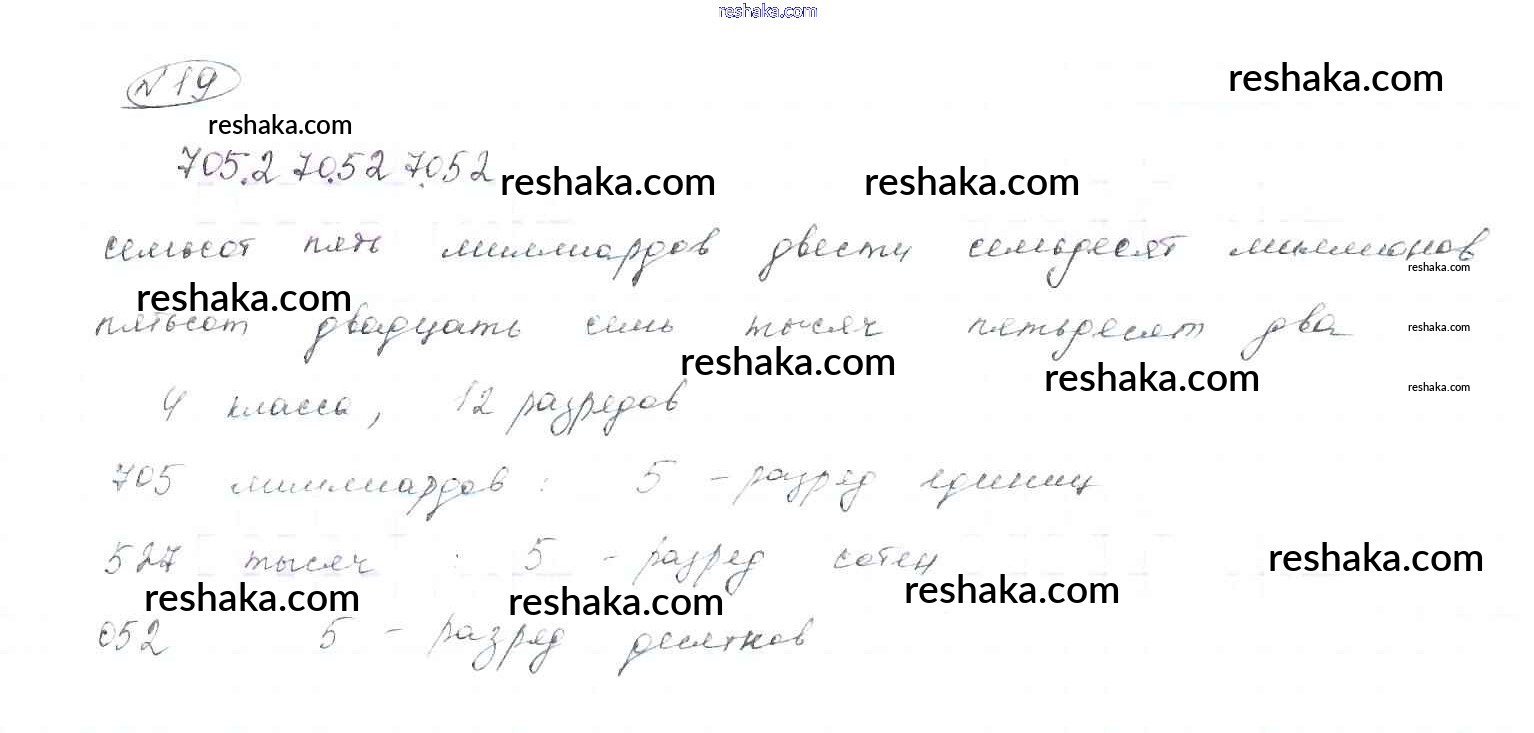 reshaka.com
№19
reshaka.com
reshaka.com
705.270.527.052
reshaka.com
reshaka.com
семьсот пять миллиардов двести семьдесят миллионов
reshaka.com
reshaka.com
пятьсот двадцать семь тысяч пятьдесят два
reshaka.com
reshaka.com
reshaka.com
reshaka.com
4 класса, 12 разрядов
705 миллиардов : 5 - разряд единиц
527 тысяч : 5 - разряд сотен
reshaka.com
reshaka.com
reshaka.com
reshaka.com
052 5 - разряд десятков